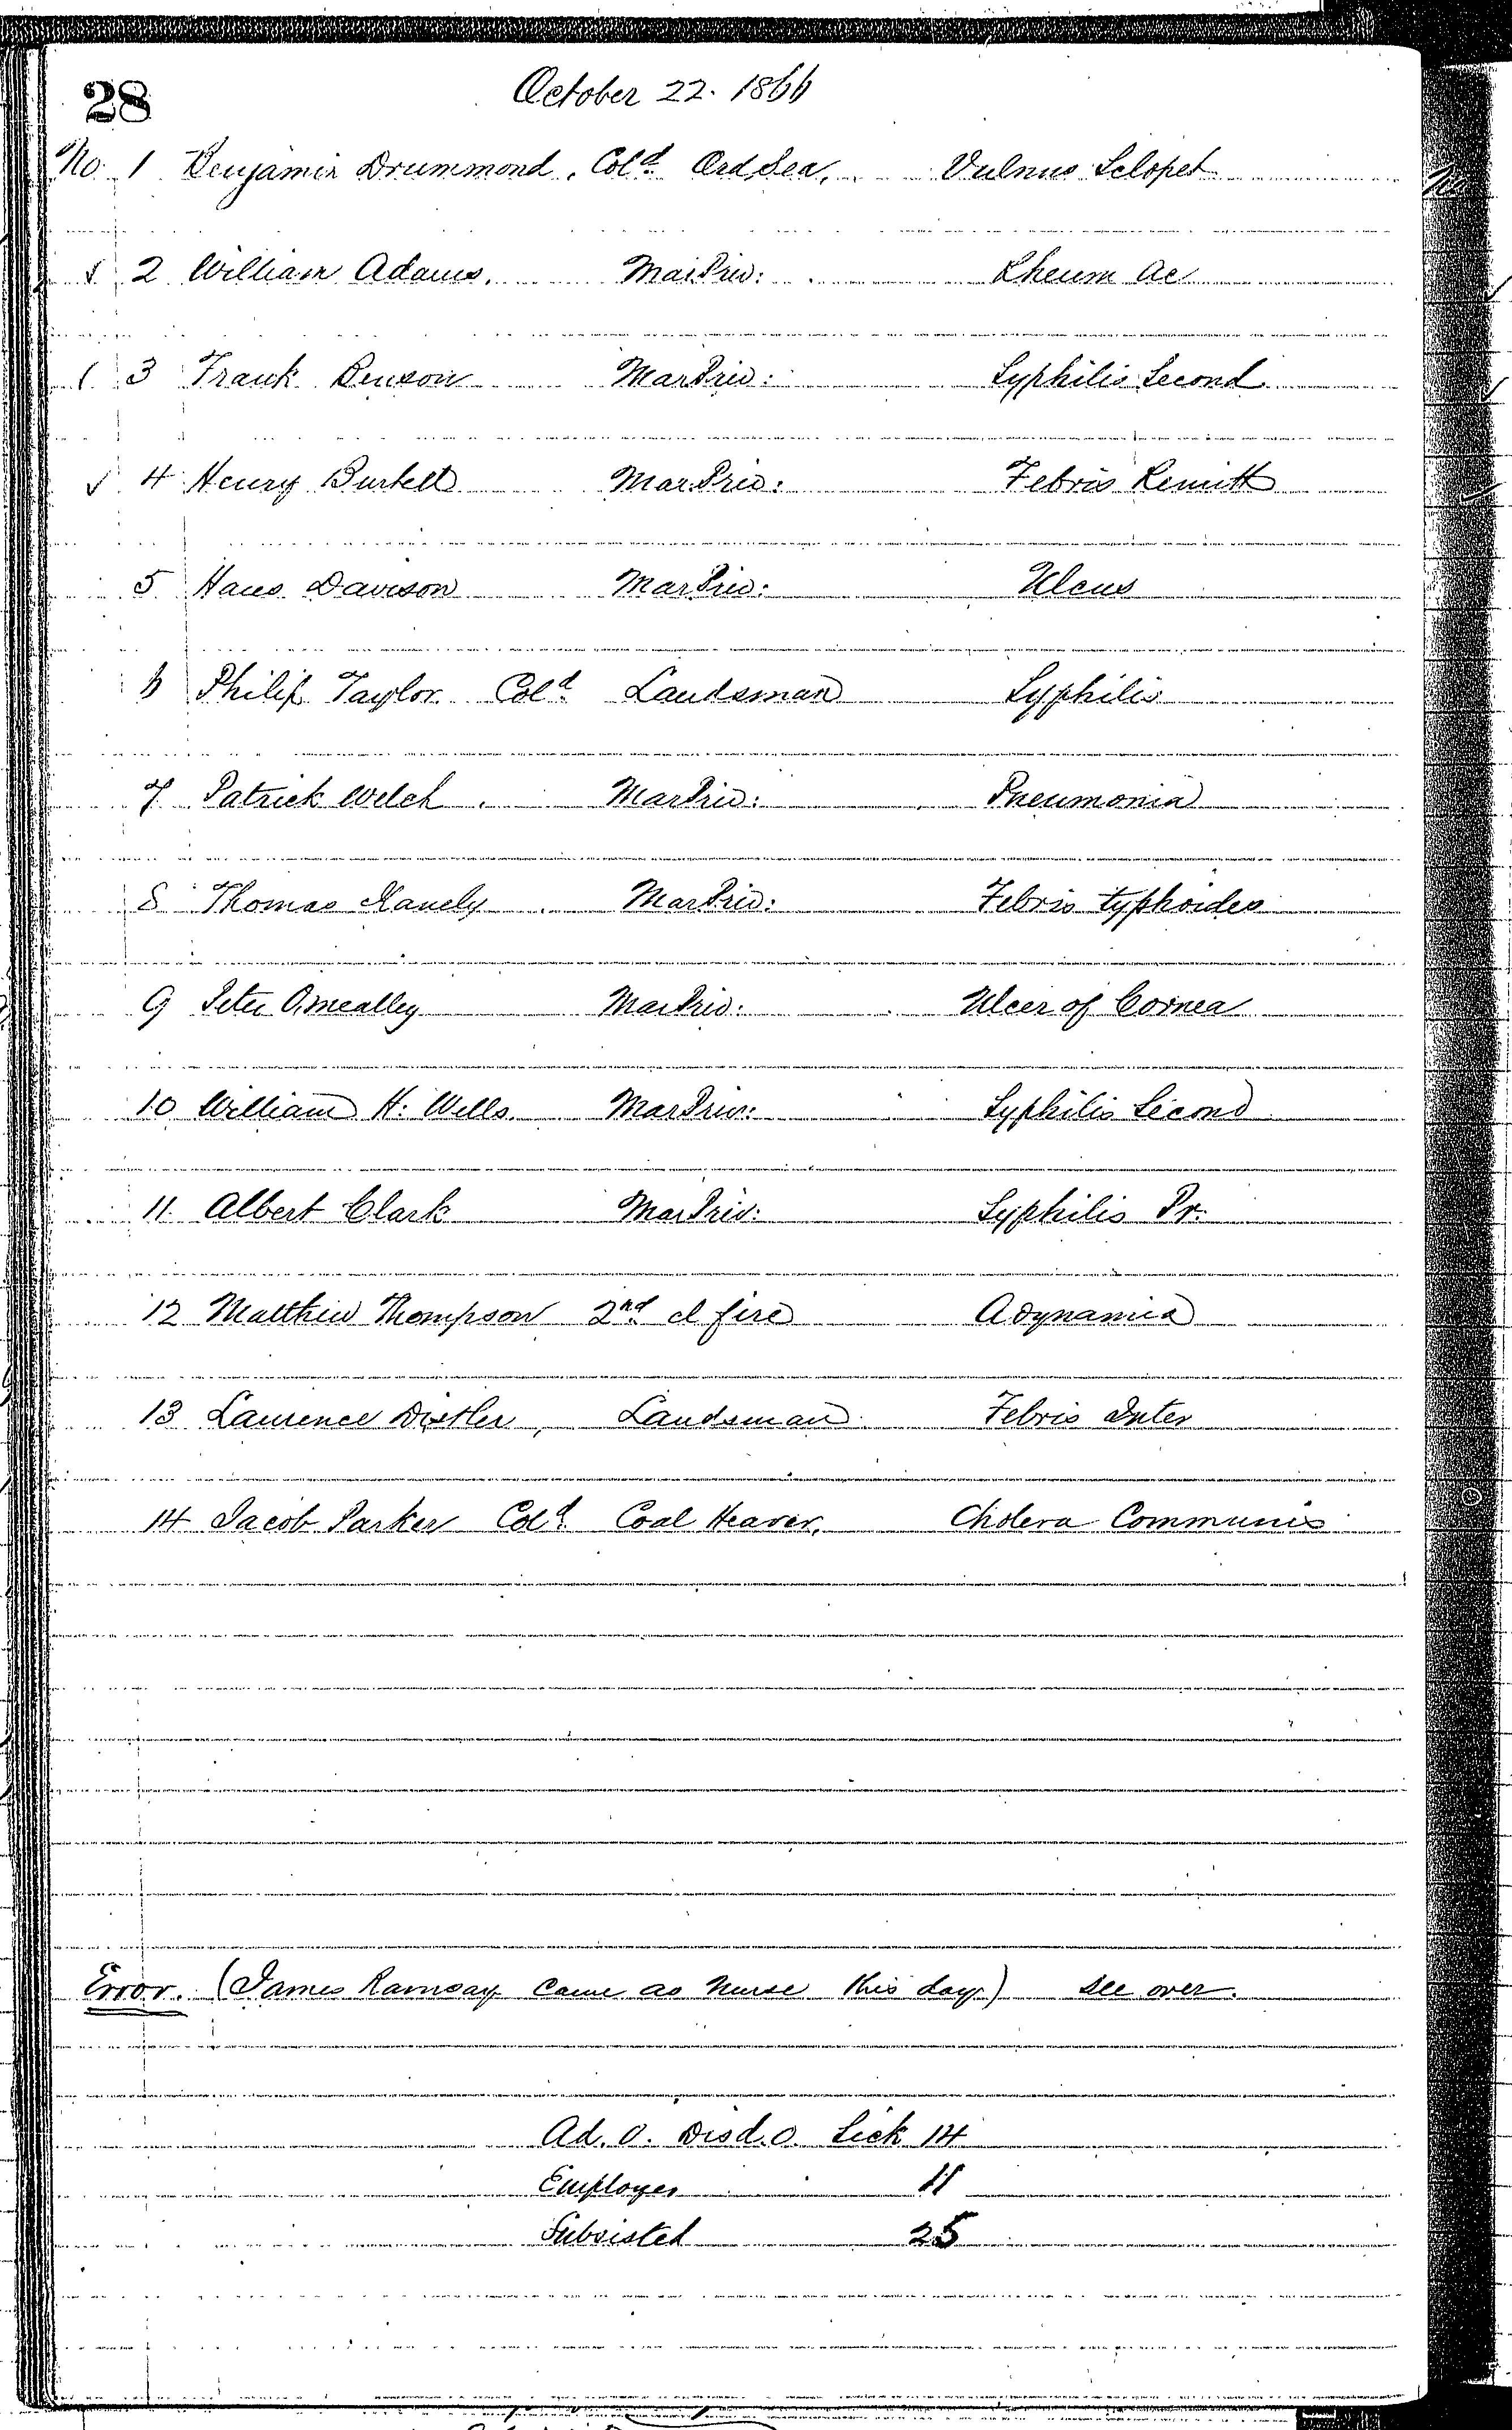 28
October 22. 1866
No. 1 Benjamin Drummond. Col.d Ord. Sea. Vulnus Sclopet
2 William Adams. Mar. Priv: Rheum Ac
3 Frank Benson Mar Priv: Syphilis Second
4 Henry Mar. Priv: Febris Remitt
5 Hans Davison Mar Priv: Ulcus
6 Philip Taylor Col.d Landsman Syphilis
7 Patrick Welch. Mar Priv: Pneumonia
8 Thomas Mar. Priv: Febris typhoides
9 Peter Omealley Mar Priv: Ulcer of Cornea
10 William H: Wells. Mar Priv: Syphilis Second
11. Albert Clark Mar Priv: Syphilis Pr.
12 Matthew Thompson 2nd cl fire Adynamia
13 Laurence Distler, Landsman Febris Inter
14 Jacob Parker Col.d Coal Heaver. Cholera Communis
Error. (James Ramsay came as Nurse this day) see over.
Ad. 0. Disd. 0. Sick 14
Employes 11
Subsisted 25